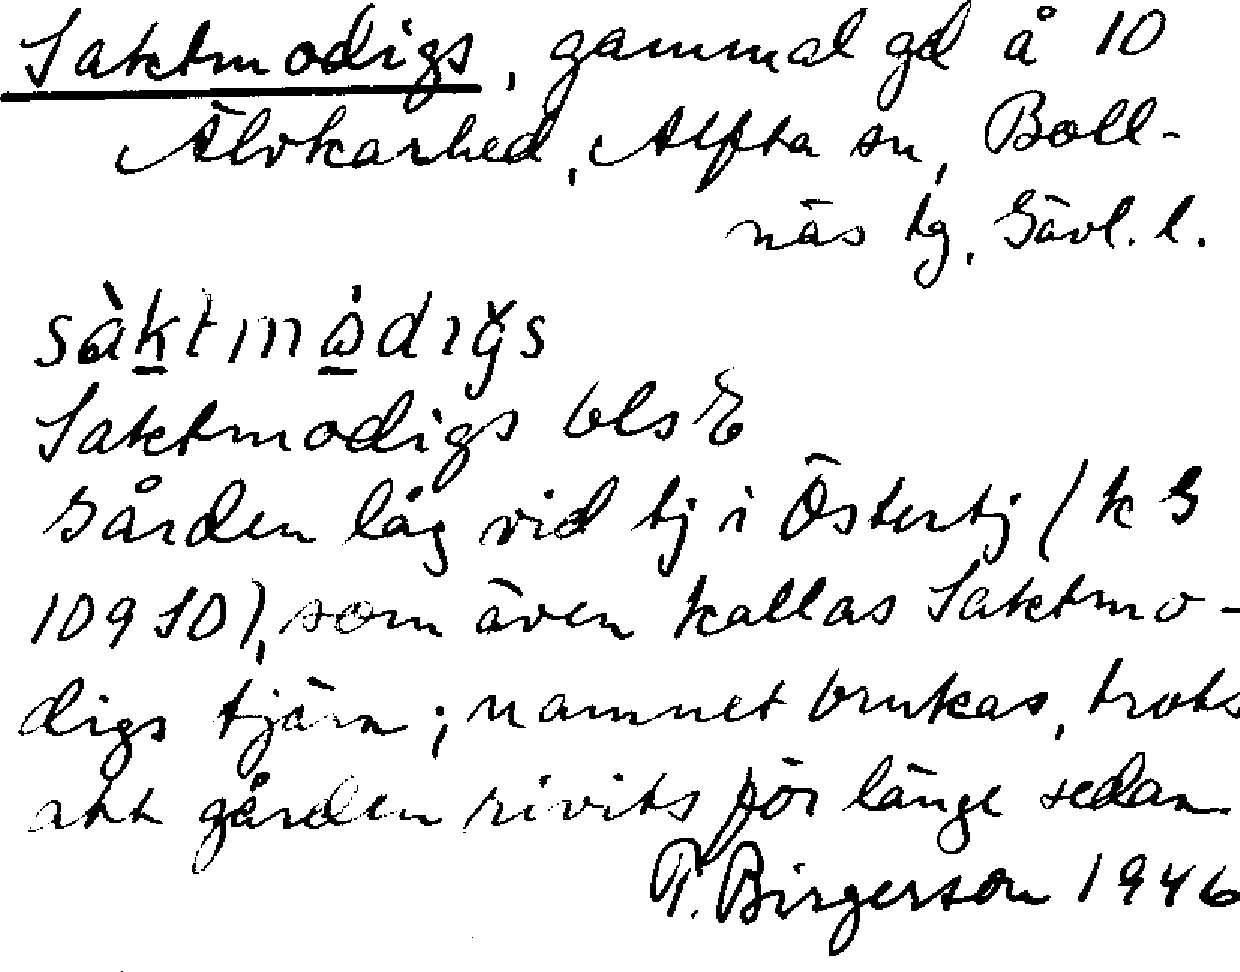 Saktmodigs, gammal gd å 10
Älvkarhed, Alfta sn, Boll-
näs tg, Gävl. l.
sàktmǫ̀dıgs
Saktmodigs bls E
Gården låg vid tj i Östertj (k G
109 SO), som även kallas Saktmo-
digs tjärn; namnet brukas, trots
att gården rivits för länge sedan
T. Birgerson 1946